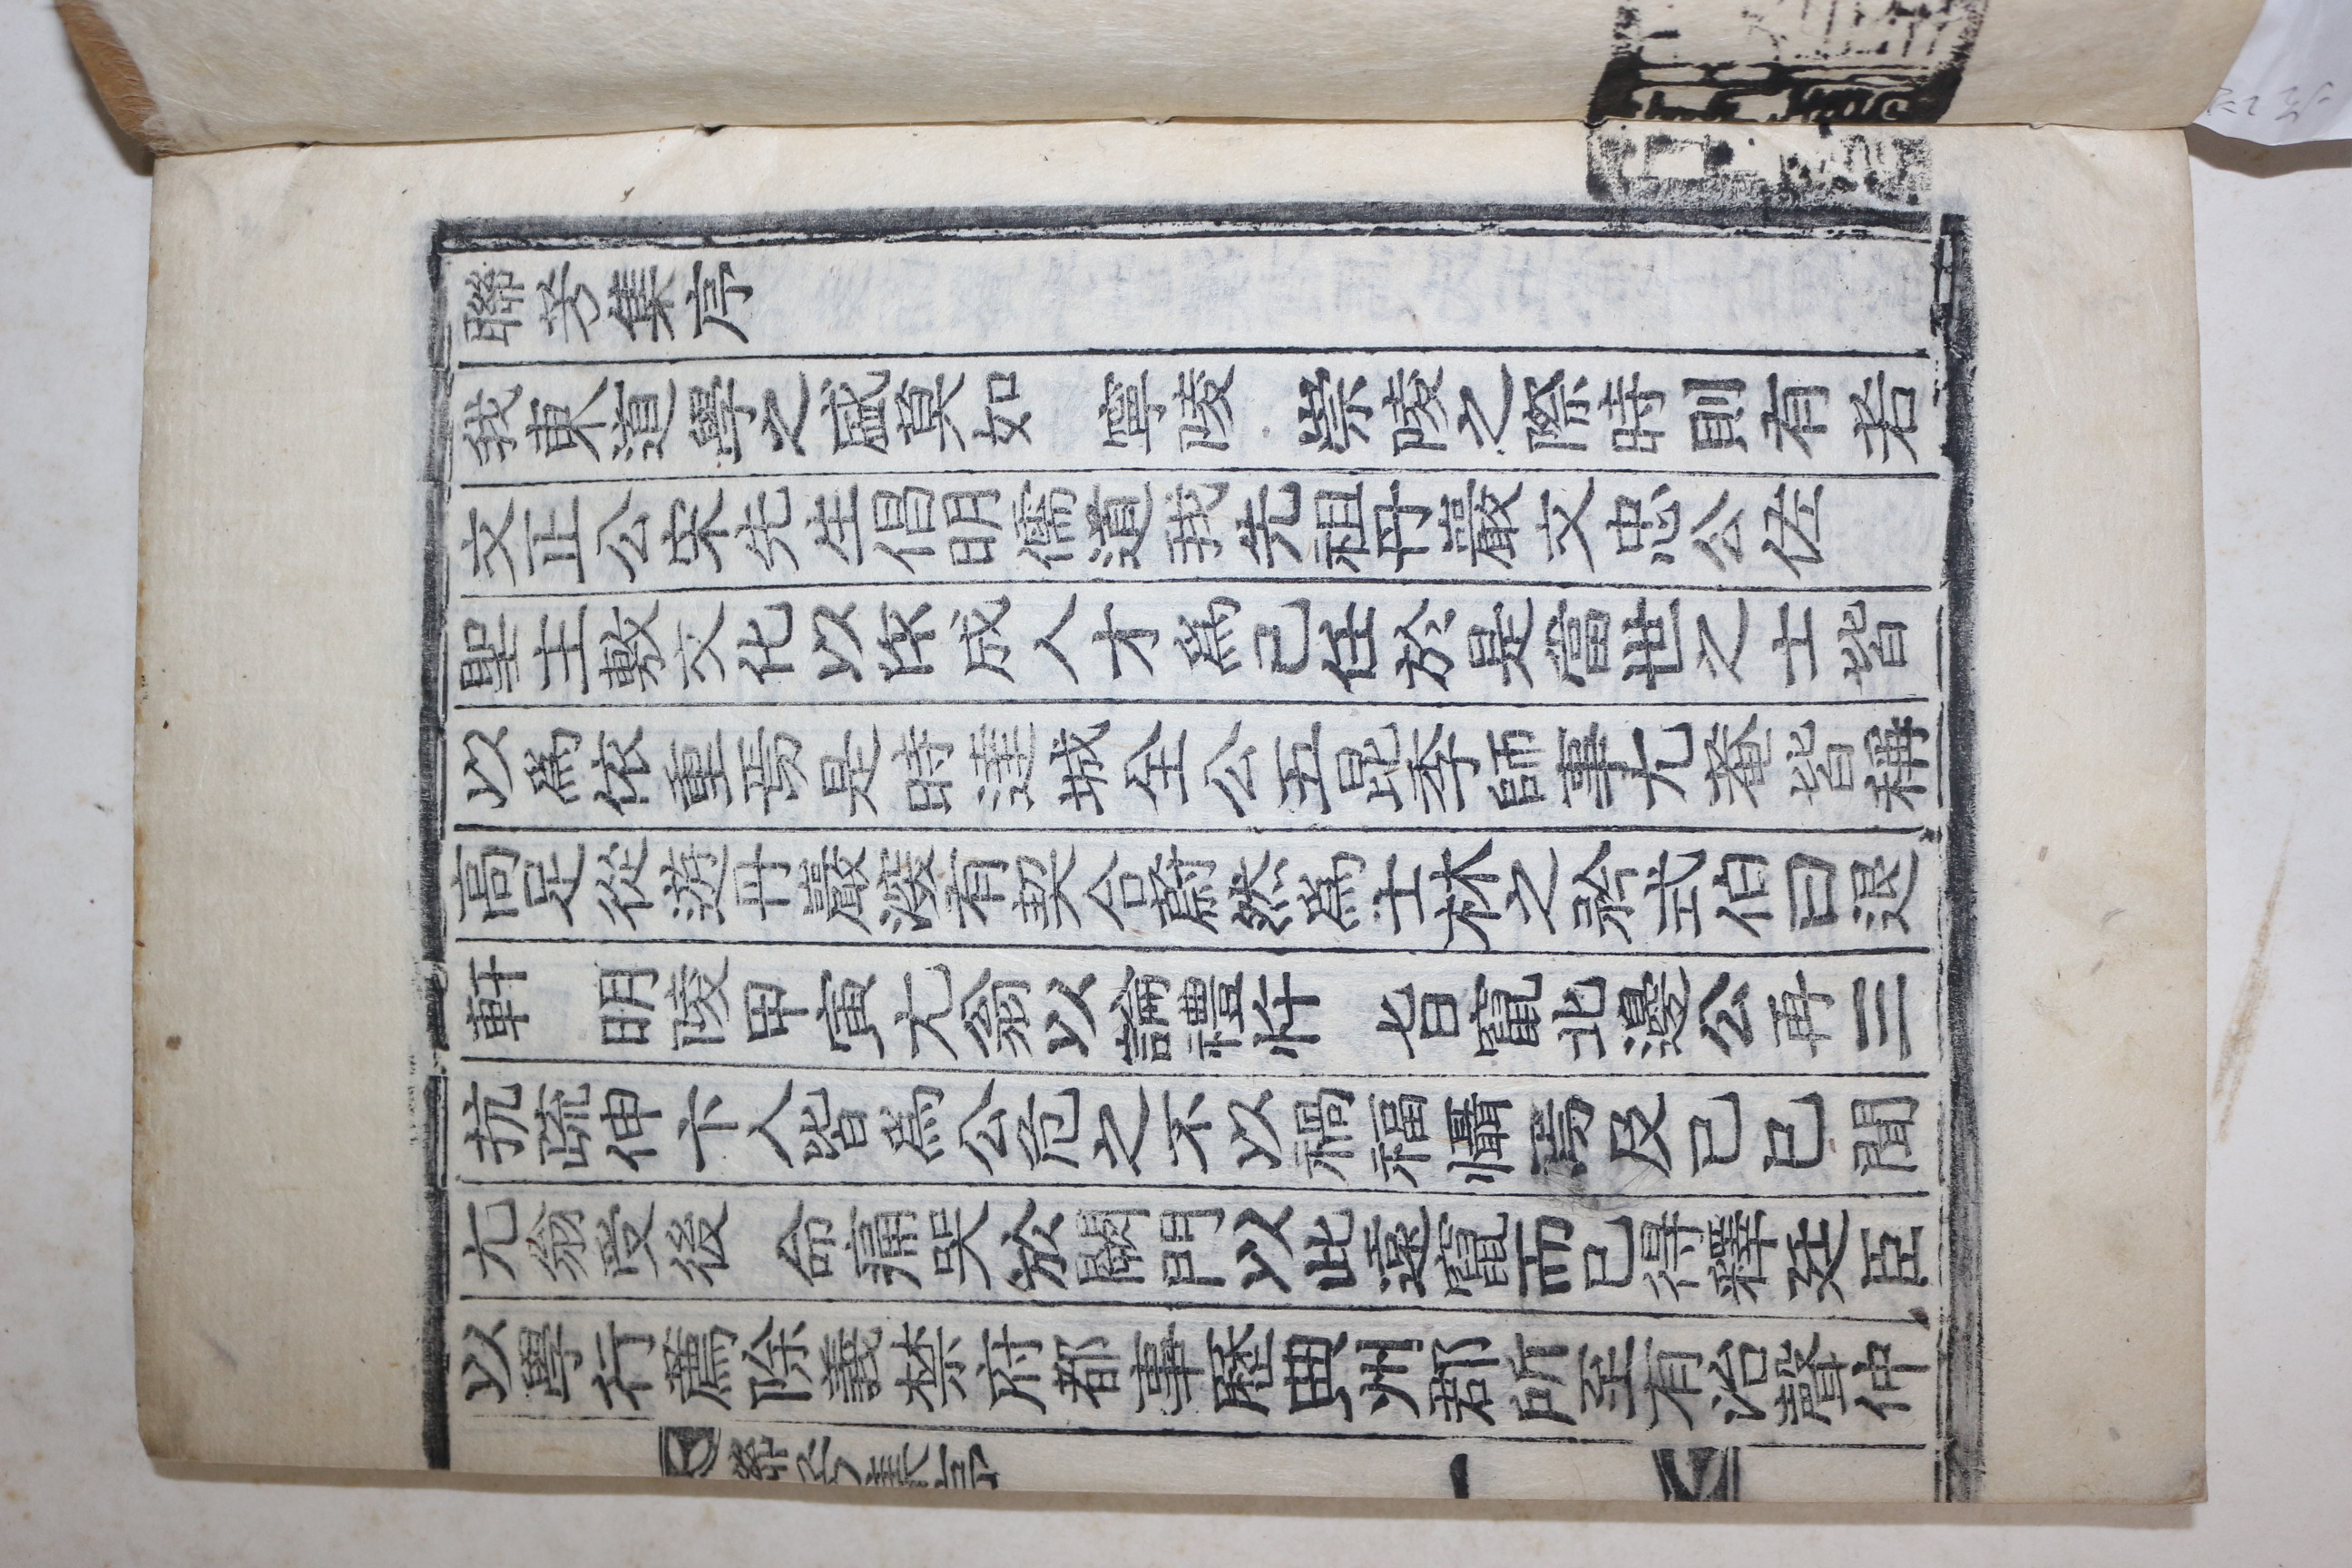 聯芳集序
我東道學之盛莫如 寧陵 崇陵之際時則有若
文正公宋先生倡明儒道我先祖丹巖文忠公佐
聖主敷文化以作成人才爲己任於是當世之士皆
以爲依重焉是時達城全公五昆季師事尤菴皆稱
高足從遊丹巖深有契合蔚然爲士林之矜式伯曰退
軒 明陵甲寅尤翁以論禮忤 旨竄北邊公再三
抗疏伸卞人皆爲公危之不以禍福懾焉及己巳聞
尤翁受後 命痛哭於闕門以此遠竄而已得釋廷臣
以學行薦除義禁府都事歷典州郡所至有治聲仲
聯芳集序
一